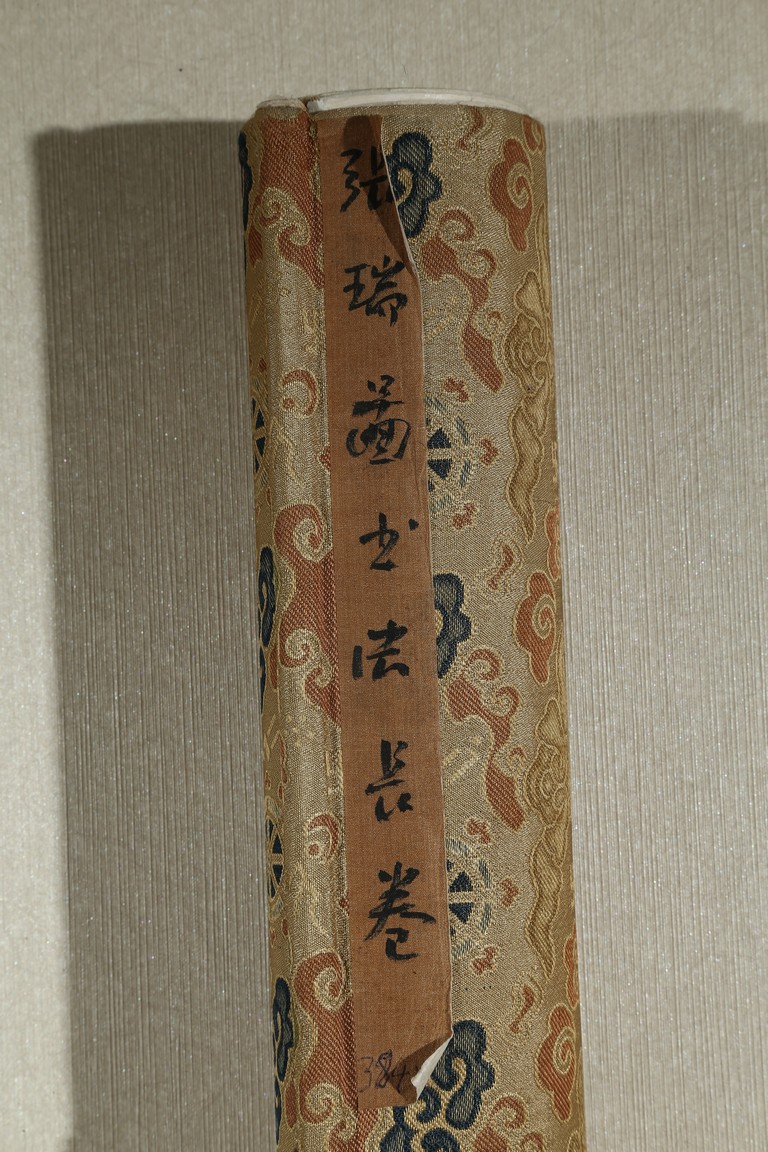 张瑞圖书法長卷
384